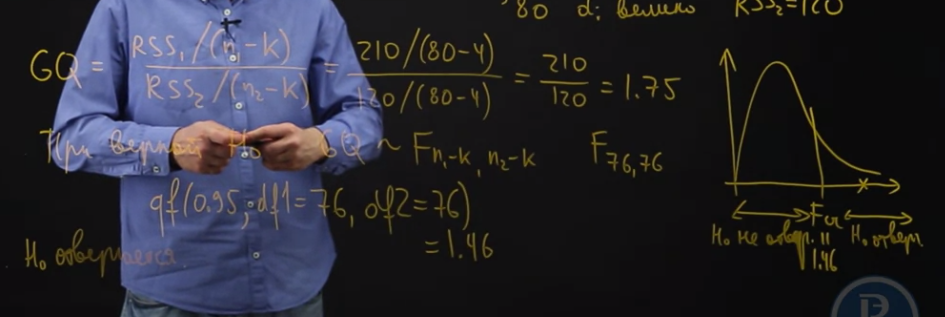 80 di велико RSS₂=120
GQ = RSS₁/(n₁-k) / RSS₂/(n₂-k) = 210/(80-4) / 120/(80-4) = 210/120 = 1.75
При верной H₀ GQ ~ Fn₁-k, n₂-k F₇₆,₇₆
qf(0.95, df1=76, df2=76)
= 1.46
H₀ отвергается.
Fcr
H₀ не отверг. H₀ отверг.
1.46